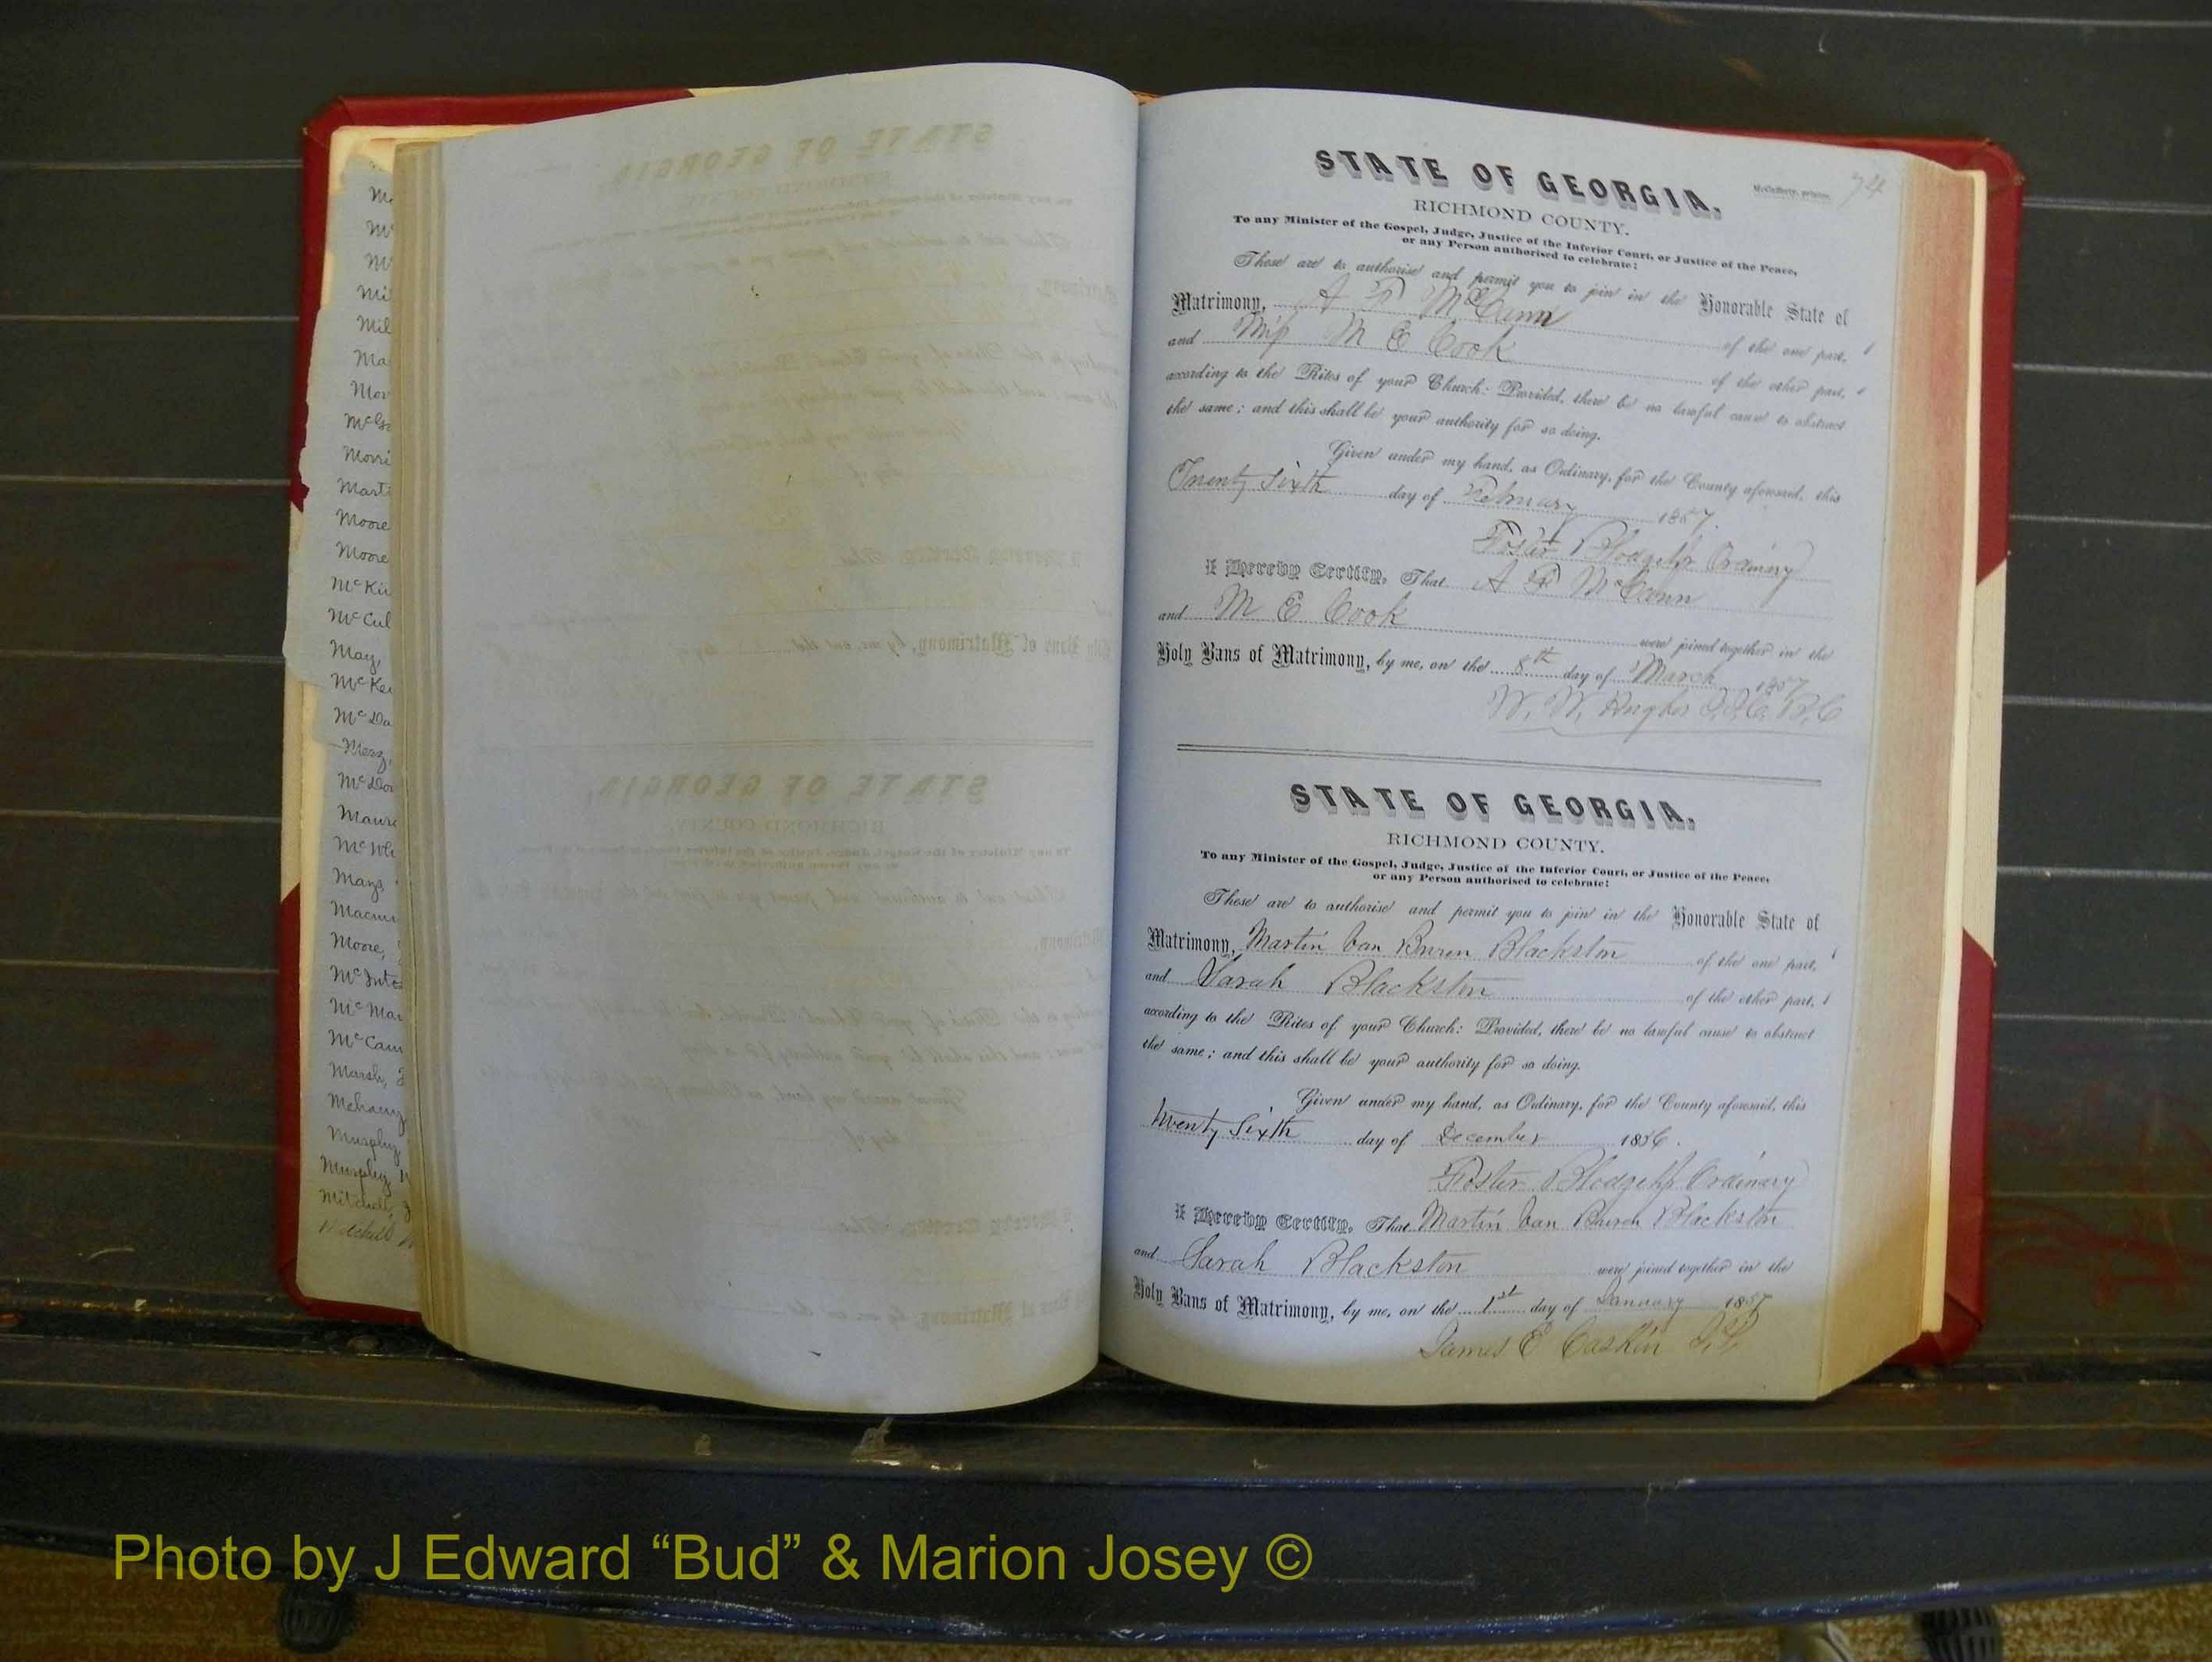 Mil
Ma
Moore
Moore
McKi
McCul
May,
McKe
McDa
Merz,
McDo
Mays,
Moore,
McInto
McMar
McCam
Marsh,
Murphy
Murphy,
Mitchell,
Mitchell
74
McCafferty, printer.
STATE OF GEORGIA.
RICHMOND COUNTY.
To any Minister of the Gospel, Judge, Justice of the Inferior Court, or Justice of the Peace,
or any Person authorised to celebrate:
These are to authorise and permit you to join in the Honorable State of
Matrimony, A P McCann of the one part,
and Miss M E Cook of the other part,
according to the Rites of your Church: Provided, there be no lawful cause to obstruct
the same; and this shall be your authority for so doing.
Given under my hand, as Ordinary, for the County aforesaid, this
Twenty Sixth day of February 1857.
Foster Blodget Jr Ordinary
I Hereby Certify, That A P McCann
and M E Cook were joined together in the
Holy Bans of Matrimony, by me, on the 8th day of March 1857
W. W. Hughes J.I.C. R.C
STATE OF GEORGIA.
RICHMOND COUNTY.
To any Minister of the Gospel, Judge, Justice of the Inferior Court, or Justice of the Peace,
or any Person authorised to celebrate:
These are to authorise and permit you to join in the Honorable State of
Matrimony, Martin Van Buren Blackston of the one part,
and Sarah Blackston of the other part,
according to the Rites of your Church: Provided, there be no lawful cause to obstruct
the same; and this shall be your authority for so doing.
Given under my hand, as Ordinary, for the County aforesaid, this
twenty Sixth day of December 1856.
Foster Blodget Jr Ordinary
I Hereby Certify, That Martin Van Buren Blackston
and Sarah Blackston were joined together in the
Holy Bans of Matrimony, by me, on the 1st day of January 1857
James E Caskin J.P.
Photo by J Edward “Bud” & Marion Josey ©